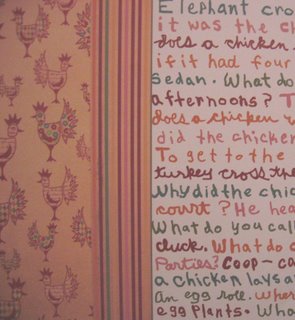 Elephant cro
it was the ch
does a chicken
if it had four
sedan. What do
afternoons? T
does a chicken
did the chicken
To get to the
turkey cross the
Why did the chic
court? He hea
What do you call
cluck. What do c
Parties? Coop-ca
a chicken lays a
An egg roll. Wher
egg plants. Wha